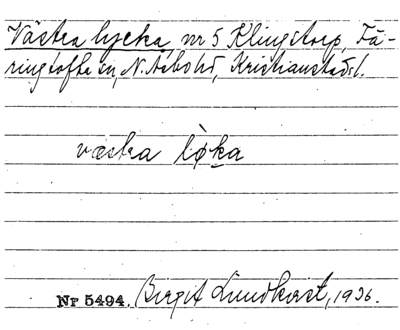 Västra lycka, nr 5 Klingstorp, Fä-
ringtofta sn, N. Åsbo hd, Kristianstads l.
væstra lø̀ka
Nr 5494. Birgit Lundkvist, 1936.